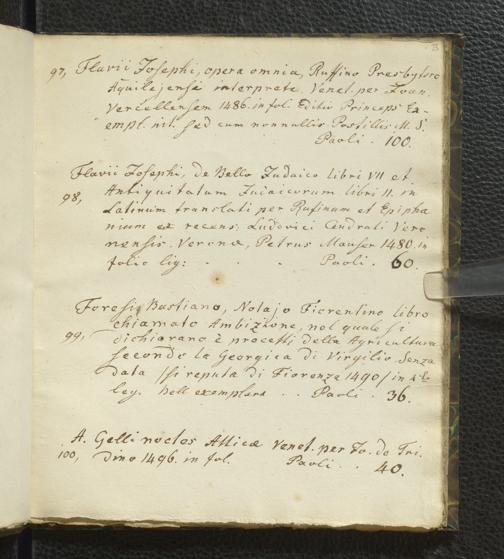 97, Flavii Josephi, opera omnia, Ruffino Presbytero
Aquilejense interprete. Venet. per Joan.
Vercellensem 1486. in fol. Editio Princeps Ex-
empl. nit. sed cum nonnullis Postillis M. S.
Paoli . 100.
Flavii Josephi, de Bello Judaico libri VII et
98, Antiquitatum Judaicorum libri II. in
Latinum translati per Rufinum et Epipha
nium et recens. Ludovici Cendrati Vero
nensis. Verona, Petrus Maufer 1480. in
folio lig: . . . Paoli . 60.
Foresi Bastiano, Notajo Fiorentino libro
chiamato Ambizione, nel quale si
99, dichiarano è processi della Agricultura
secondo la Georgica di Virgilio. Senza
data /si reputa di Fiorenze 1490/ in 4to
leg. bell exemplare . . Paoli . 36.
A. Gelli noctes Atticæ Venet. per Jo. de Tri.
100, dino 1496. in fol. Paoli . . 40.